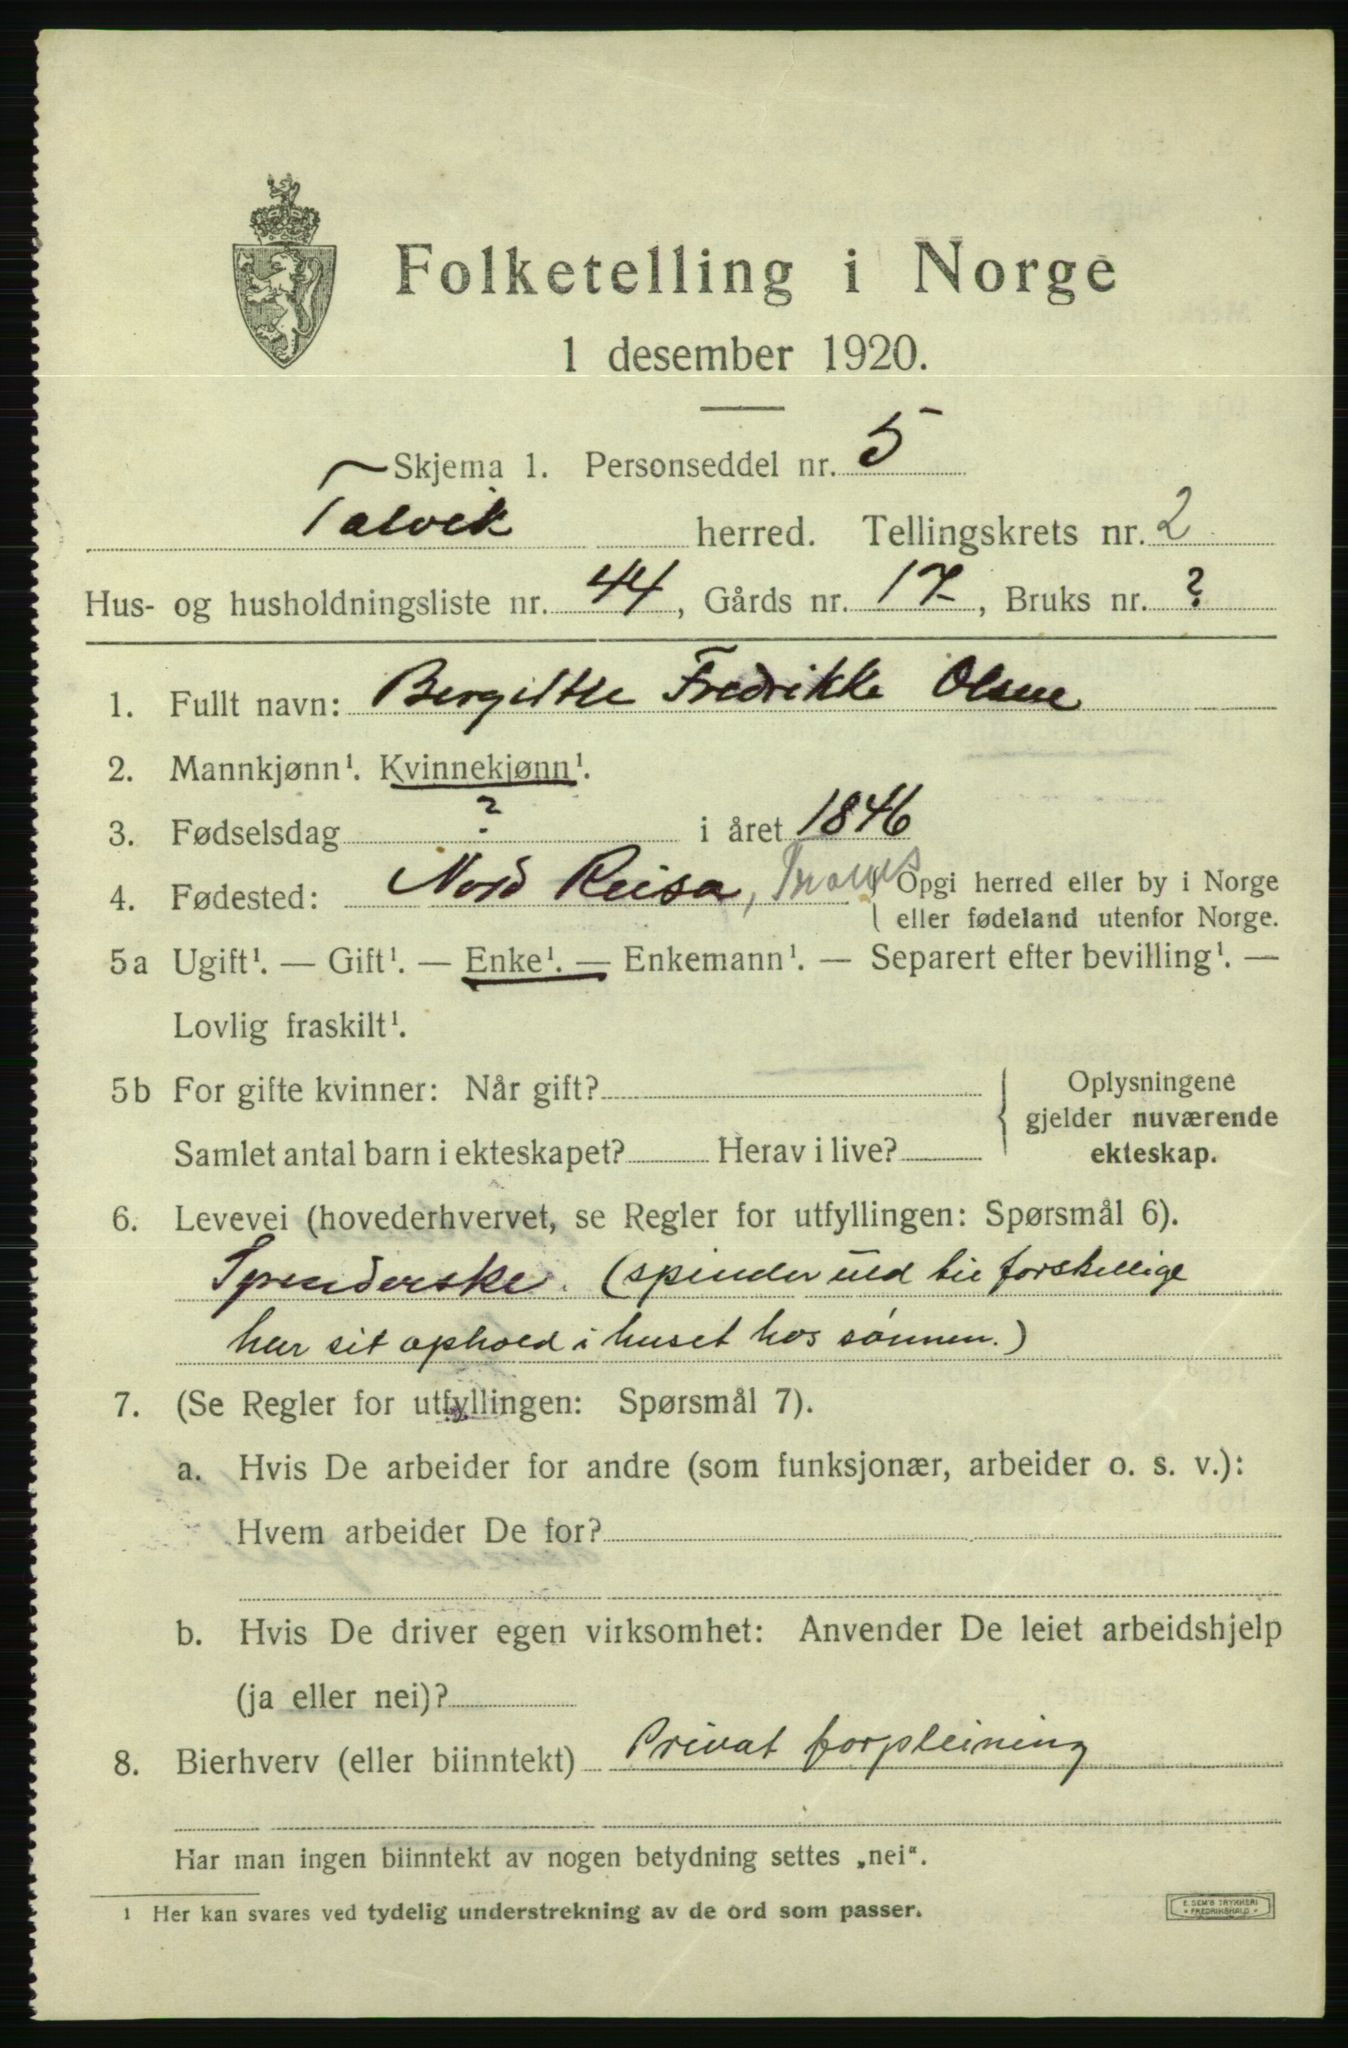 Folketelling i Norge
1 desember 1920.
Skjema 1. Personseddel nr. 5
Talvik herred. Tellingskrets nr. 2
Hus- og husholdningsliste nr. 44, Gårds nr. 17, Bruks nr. ?
1. Fullt navn: Bergitte Fredrikke Olsen
2. Mannkjønn¹. Kvinnekjønn¹.
3. Fødselsdag ? i året 1846
4. Fødested: Nord Reisa, Troms ( Opgi herred eller by i Norge
eller fødeland utenfor Norge.
5a Ugift¹. — Gift¹. — Enke¹. — Enkemann¹. — Separert efter bevilling¹. —
Lovlig fraskilt¹.
5b For gifte kvinner: Når gift?
Samlet antal barn i ekteskapet? Herav i live?
Oplysningene
gjelder nuværende
ekteskap.
6. Levevei (hovederhvervet, se Regler for utfyllingen: Spørsmål 6).
Spinderske. (spinder uld til forskellige
har sit ophold i huset hos sønnen.)
7. (Se Regler for utfyllingen: Spørsmål 7).
a. Hvis De arbeider for andre (som funksjonær, arbeider o. s. v.):
Hvem arbeider De for?
b. Hvis De driver egen virksomhet: Anvender De leiet arbeidshjelp
(ja eller nei)?
8. Bierhverv (eller biinntekt) Privat forpleining
Har man ingen biinntekt av nogen betydning settes „nei".
¹ Her kan svares ved tydelig understrekning av de ord som passer.
E. SEM'S TRYKKERI
FREDRIKSHALD